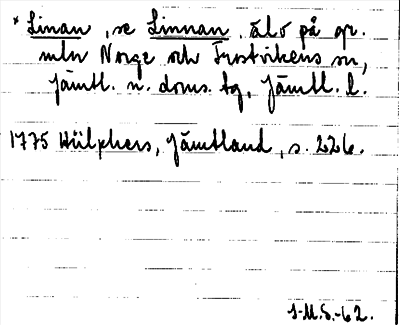 * Linan, se Linnan, älv på gr.
mln Norge och Frostvikens sn,
Jämtl. n. doms. tg, Jämtl. l.
1775 Hülphers, Jämtland, s. 226.
J-M.S.-62.